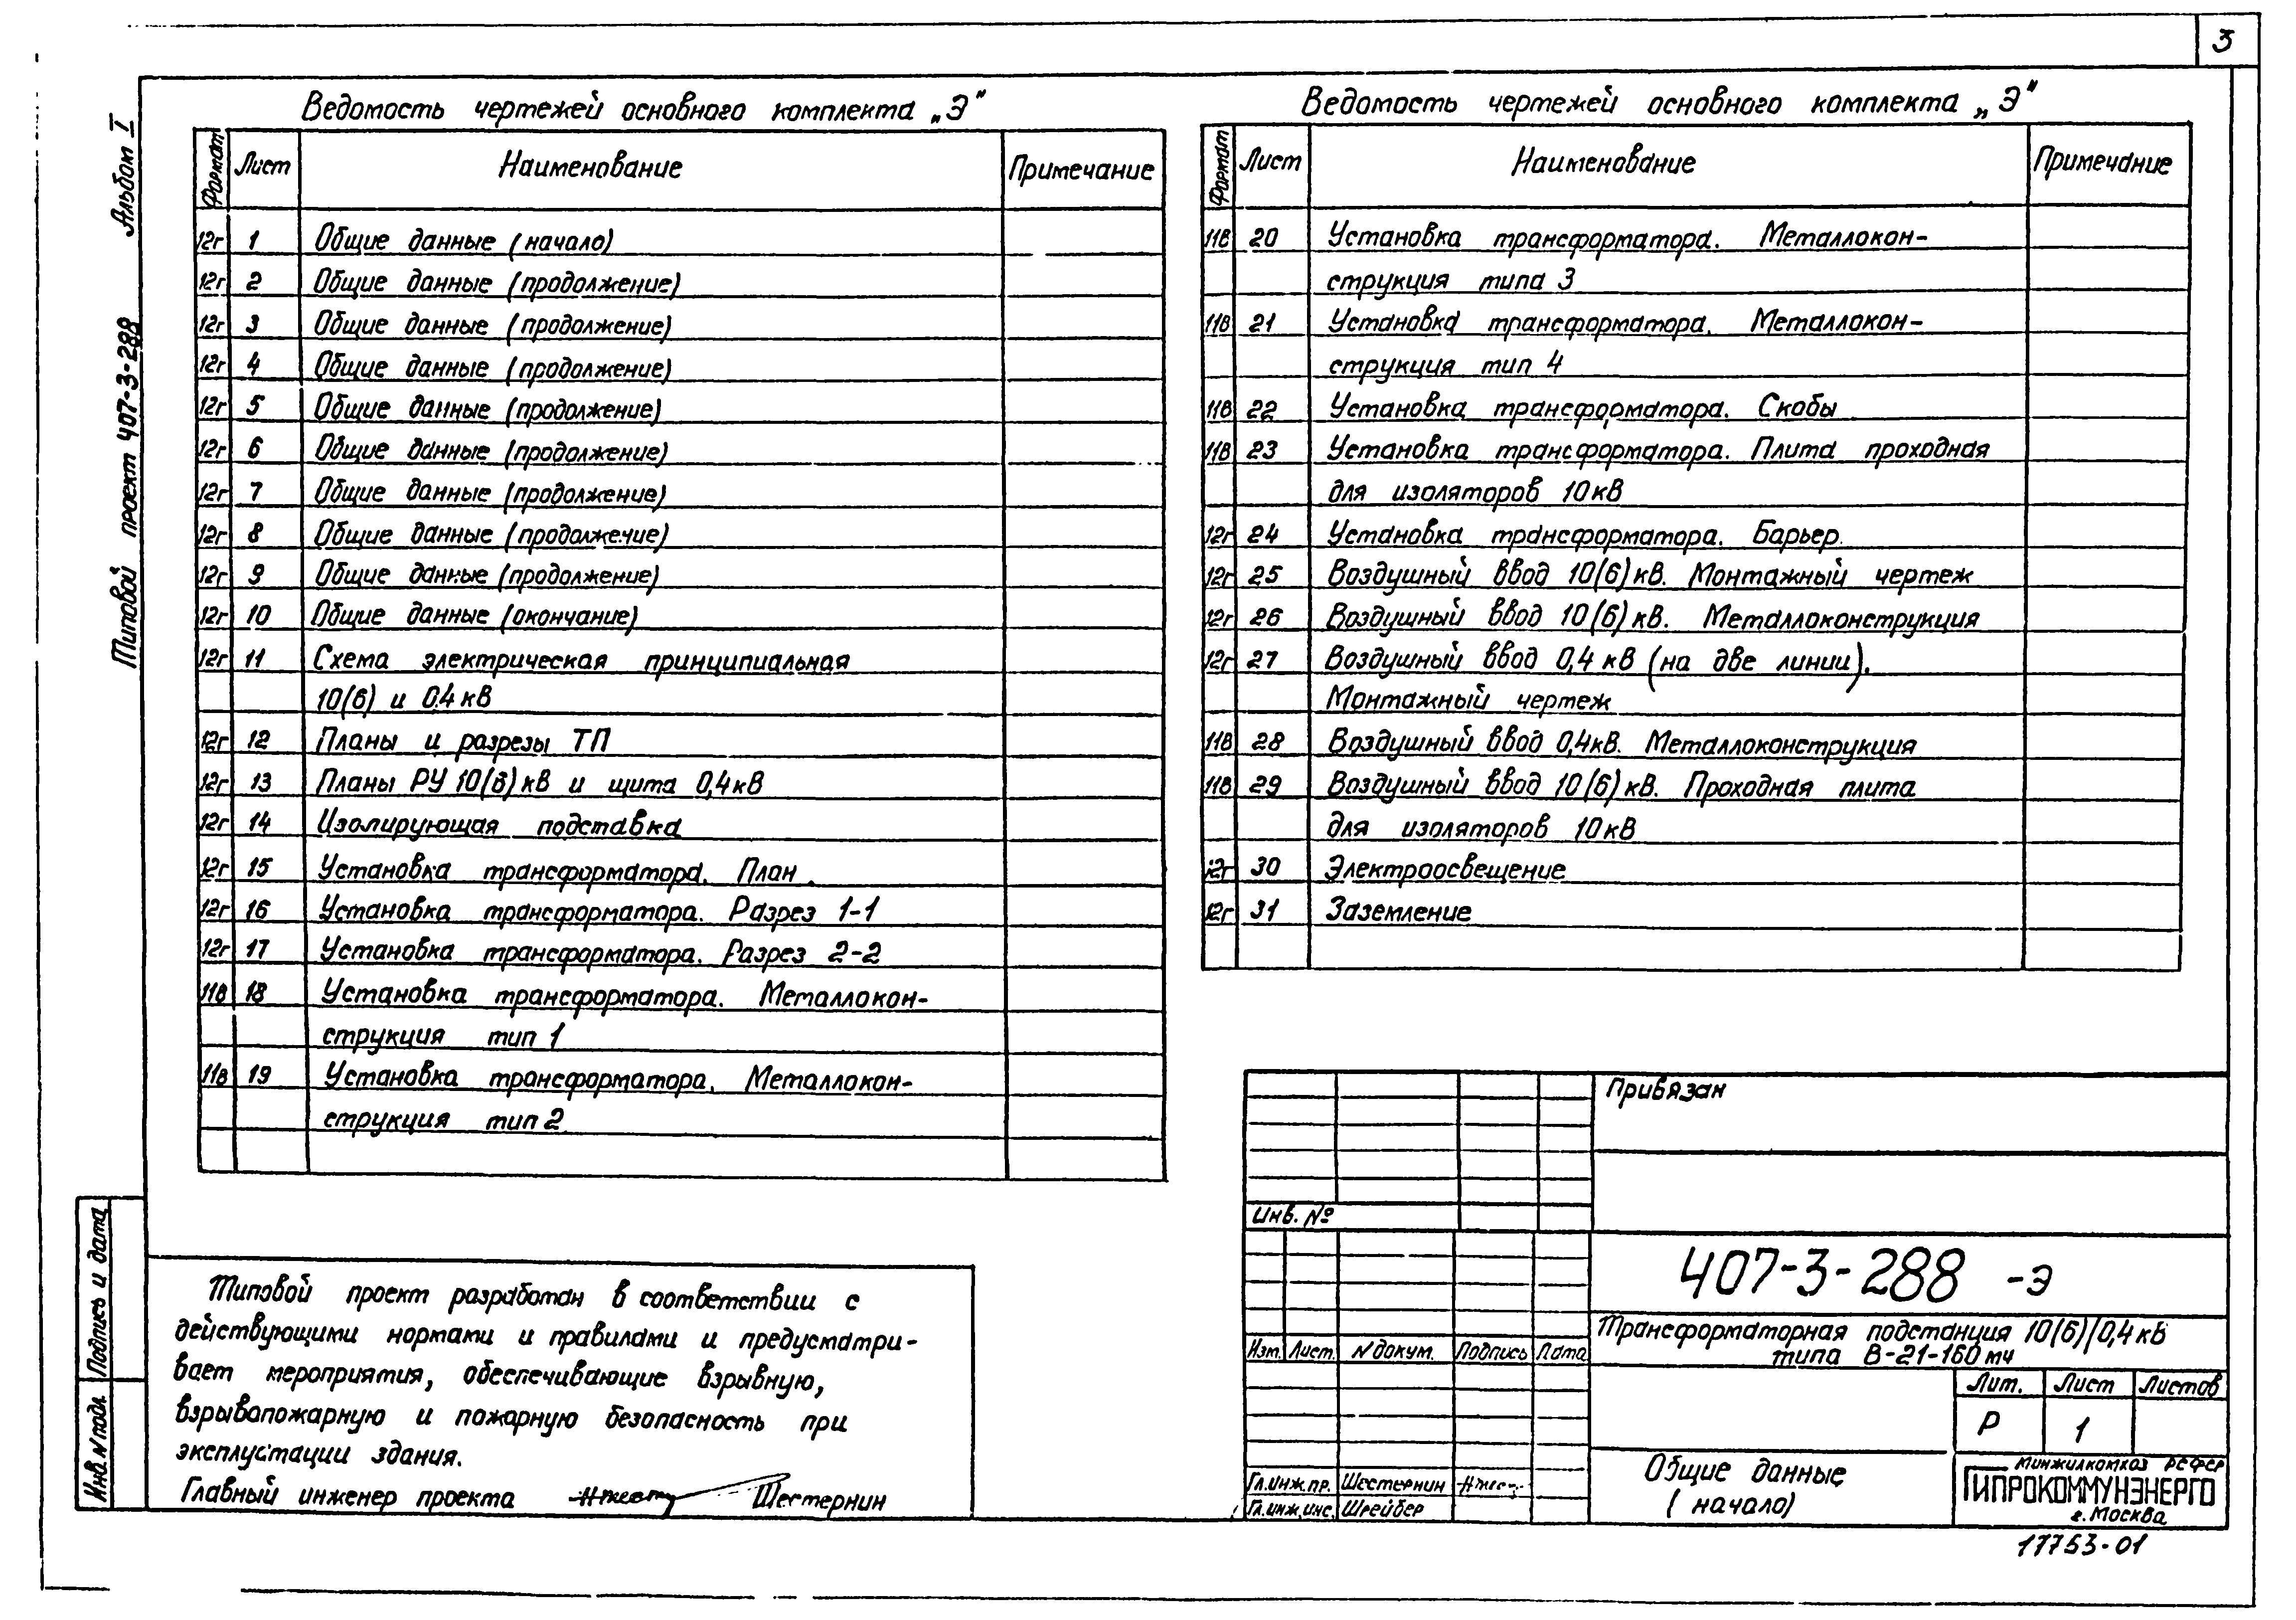 3
Типовой проект 407-3-288 Альбом I
Ведомость чертежей основного комплекта „Э"
Формат Лист Наименование Примечание
12г 1 Общие данные (начало)
12г 2 Общие данные (продолжение)
12г 3 Общие данные (продолжение)
12г 4 Общие данные (продолжение)
12г 5 Общие данные (продолжение)
12г 6 Общие данные (продолжение)
12г 7 Общие данные (продолжение)
12г 8 Общие данные (продолжение)
12г 9 Общие данные (продолжение)
12г 10 Общие данные (окончание)
12г 11 Схема электрическая принципиальная
10(6) и 0.4 кВ
12г 12 Планы и разрезы ТП
12г 13 Планы РУ 10(6) кВ и щита 0,4 кВ
12г 14 Изолирующая подставка
12г 15 Установка трансформатора. План.
12г 16 Установка трансформатора. Разрез 1-1
12г 17 Установка трансформатора. Разрез 2-2
11В 18 Установка трансформатора. Металлокон-
струкция тип 1
11В 19 Установка трансформатора. Металлокон-
струкция тип 2
Ведомость чертежей основного комплекта „Э"
Формат Лист Наименование Примечание
11В 20 Установка трансформатора. Металлокон-
струкция типа 3
11В 21 Установка трансформатора. Металлокон-
струкция тип 4
11В 22 Установка трансформатора. Скобы
11В 23 Установка трансформатора. Плита проходная
для изоляторов 10 кВ
12г 24 Установка трансформатора. Барьер.
12г 25 Воздушный ввод 10(6) кВ. Монтажный чертеж
12г 26 Воздушный ввод 10(6) кВ. Металлоконструкция
12г 27 Воздушный ввод 0,4 кВ (на две линии).
Монтажный чертеж
11В 28 Воздушный ввод 0,4кВ. Металлоконструкция
11В 29 Воздушный ввод 10(6) кВ. Проходная плита
для изоляторов 10 кВ
12г 30 Электроосвещение
12г 31 Заземление
Подпись и дата
Инв. N подл.
Типовой проект разработан в соответствии с
действующими нормами и правилами и предусматри-
вает мероприятия, обеспечивающие взрывную,
взрывопожарную и пожарную безопасность при
эксплуатации здания.
Главный инженер проекта Шестернин
Привязан
Инв. №
407-3-288 -Э
Трансформаторная подстанция 10(6)/0,4 кВ
типа В-21-160 м4
Изм. Лист. N докум. Подпись Дата
Лит. Лист Листов
Р 1
Общие данные
(начало)
Гл.инж.пр. Шестернин
Гл.инж.инс. Шрейбер
Минжилкомхоз РСФСР
ГИПРОКОММУНЭНЕРГО
г. Москва
17753-01